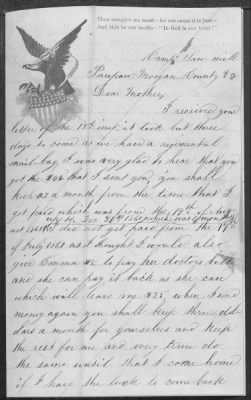 Then conquer we must—for our cause it is just—
And this be our motto: "In God is our trust!"
Camp Saw mill
County
Dear Mother,
I received your
letter of the 18th inst it took but three
days to come as we have a regimental
mail bag I was very glad to hear that you
got the that I sent you, you shall
keep $3 a month from the time that I
got paid which was from the 19th of Aug
1861 I did not get paid from the 19th
of July 1861 as I thought I would, also
give Emma to pay her doctors bill
and she can pay it back as she can
which will leave me $25, when I send
money again you shall keep three dol-
dars a month for yourselves and keep
the rest for me and every time do
the same until that I come home
if I have the luck to come back